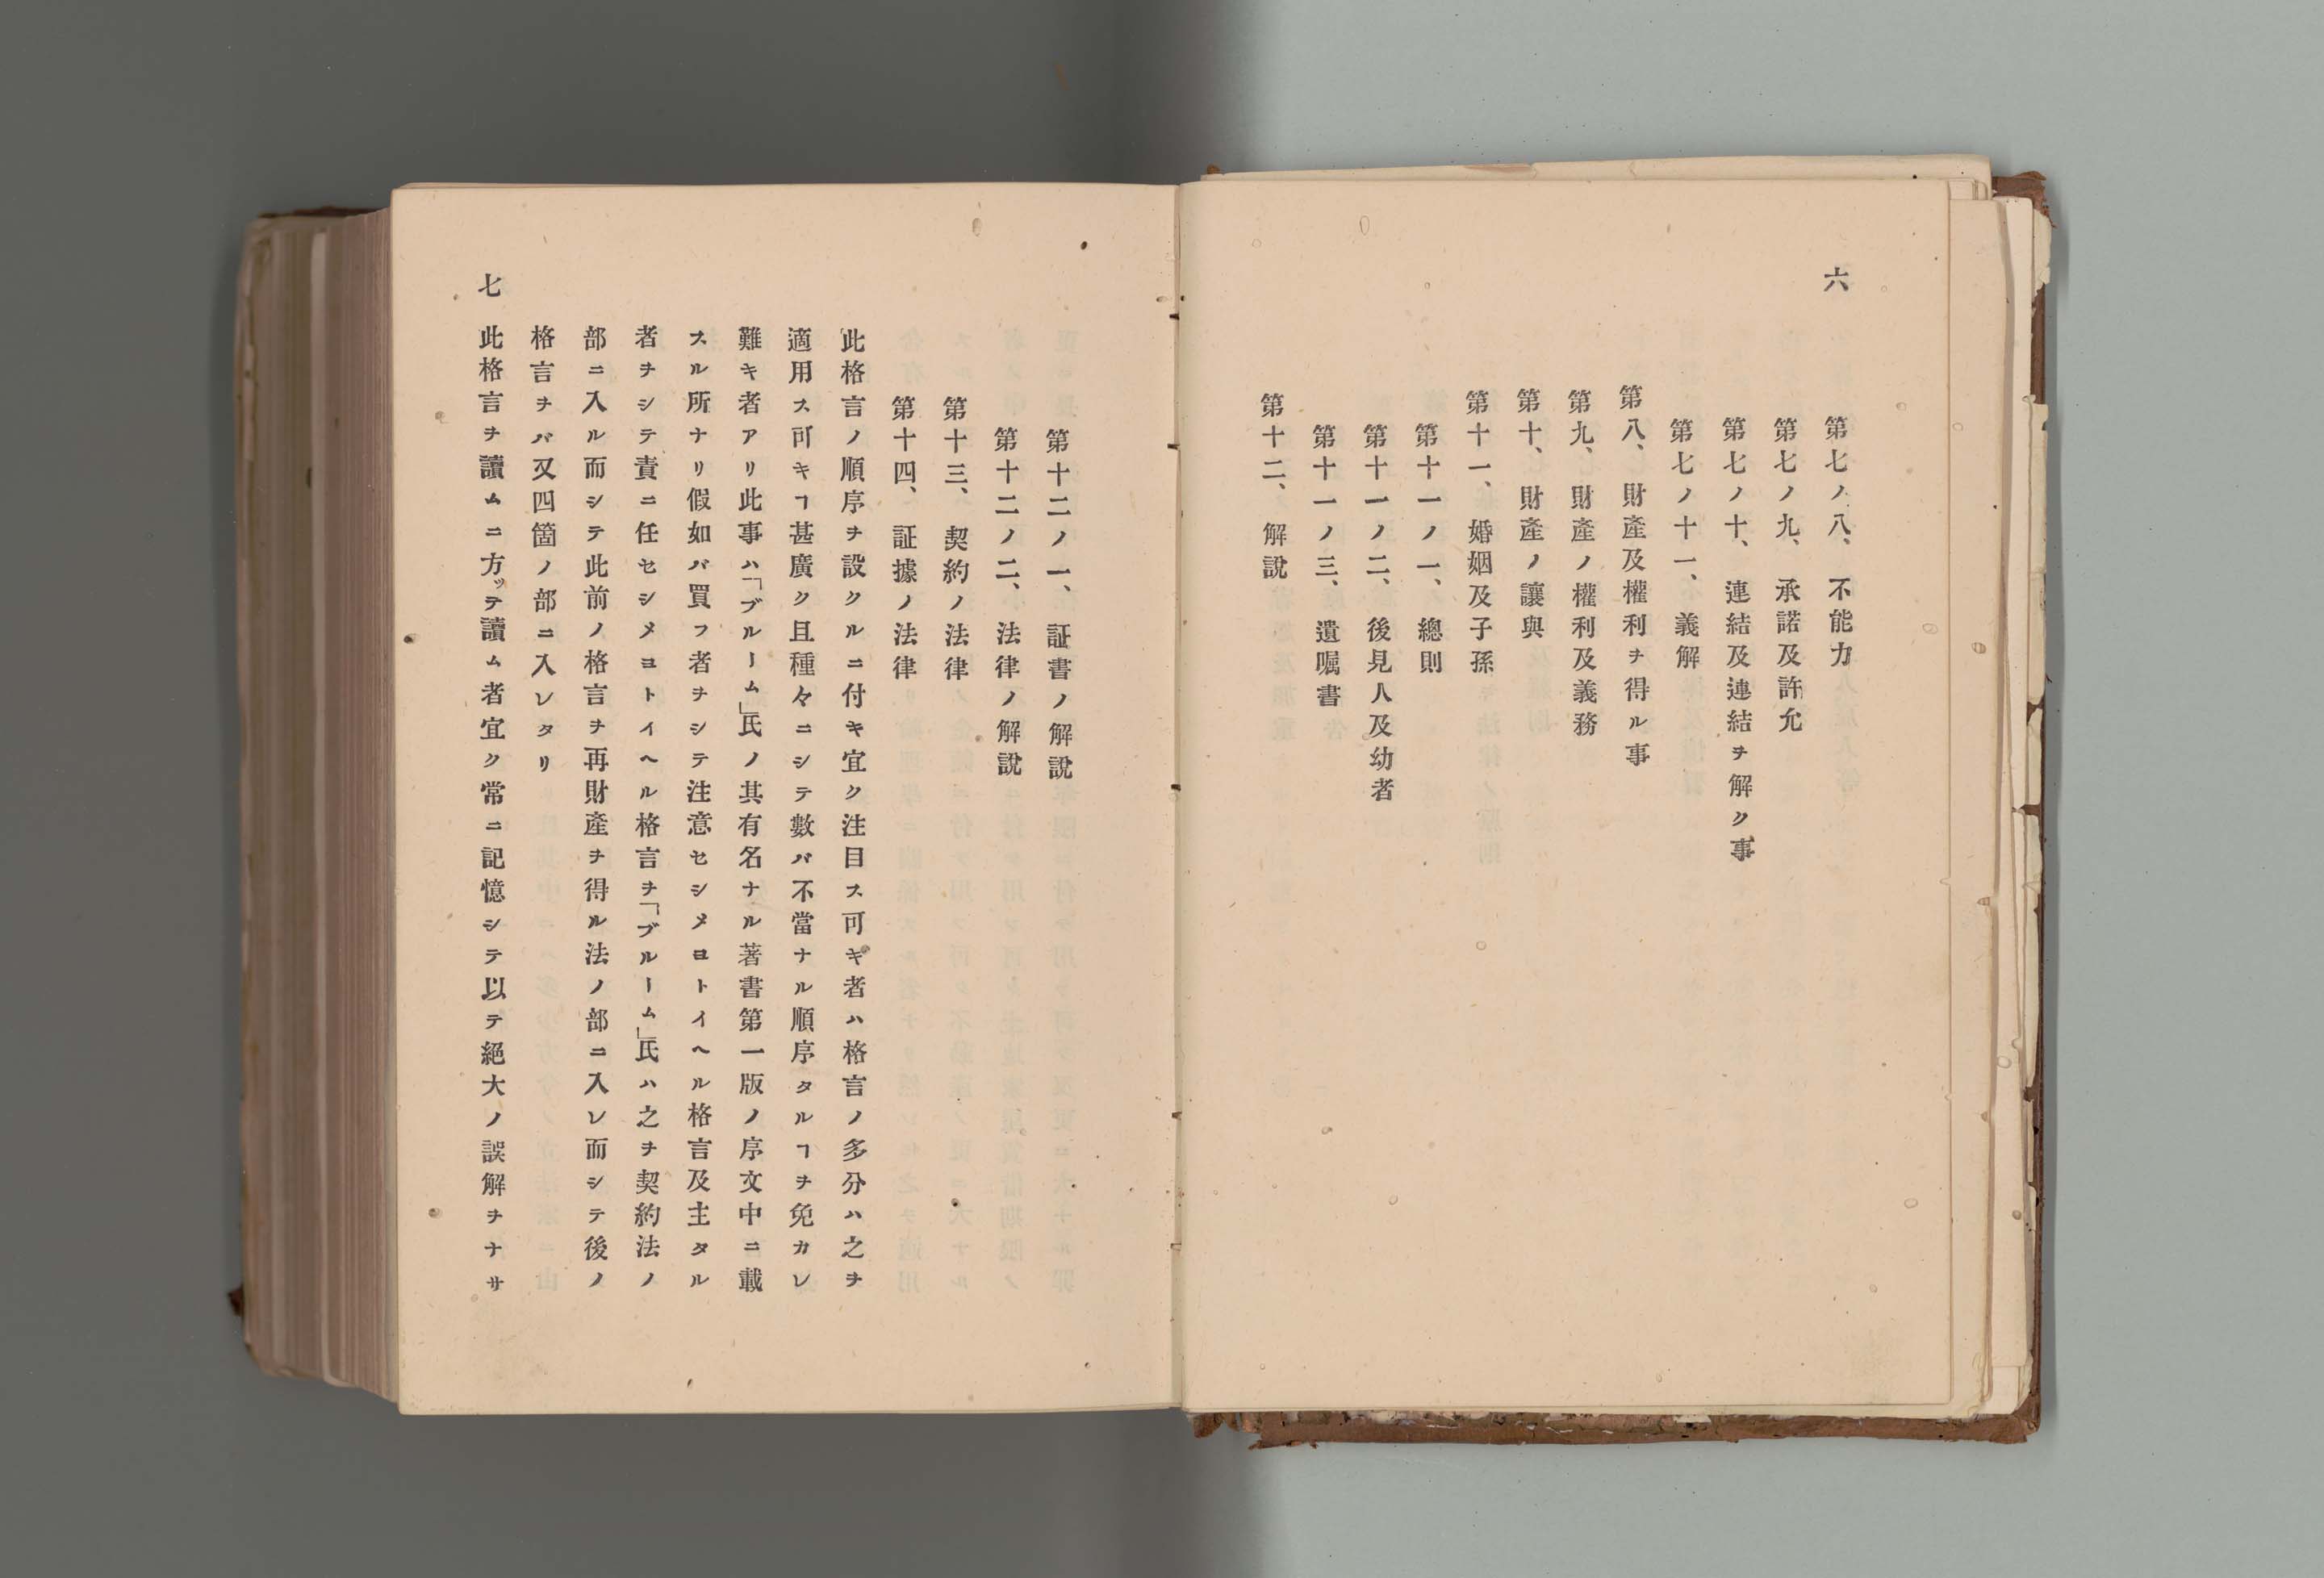 六
第七ノ八、不能力
第七ノ九、承諾及許允
第七ノ十、連結及連結ヲ解ク事
第七ノ十一、義解
第八、財產及權利ヲ得ル事
第九、財產ノ權利及義務
第十、財產ノ讓與
第十一、婚姻及子孫
第十一ノ一、總則
第十一ノ二、後見人及幼者
第十一ノ三、遺囑書
第十二、解說
第十二ノ一、証書ノ解說
第十二ノ二、法律ノ解說
第十三、契約ノ法律
第十四、証據ノ法律
此格言ノ順序ヲ設クルニ付キ宜ク注目ス可キ者ハ格言ノ多分ハ之ヲ
適用ス可キヿ甚廣ク且種々ニシテ數バ不當ナル順序タルヿヲ免カレ
難キ者アリ此事ハ「ブルーム」氏ノ其有名ナル著書第一版ノ序文中ニ載
スル所ナリ假如バ買フ者ヲシテ注意セシメヨトイヘル格言及主タル
者ヲシテ責ニ任セシメヨトイヘル格言ヲ「ブルーム」氏ハ之ヲ契約法ノ
部ニ入ル而シテ此前ノ格言ヲ再財產ヲ得ル法ノ部ニ入レ而シテ後ノ
格言ヲバ又四箇ノ部ニ入レタリ
此格言ヲ讀ムニ方ッテ讀ム者宜ク常ニ記憶シテ以テ絕大ノ誤解ヲナサ
七